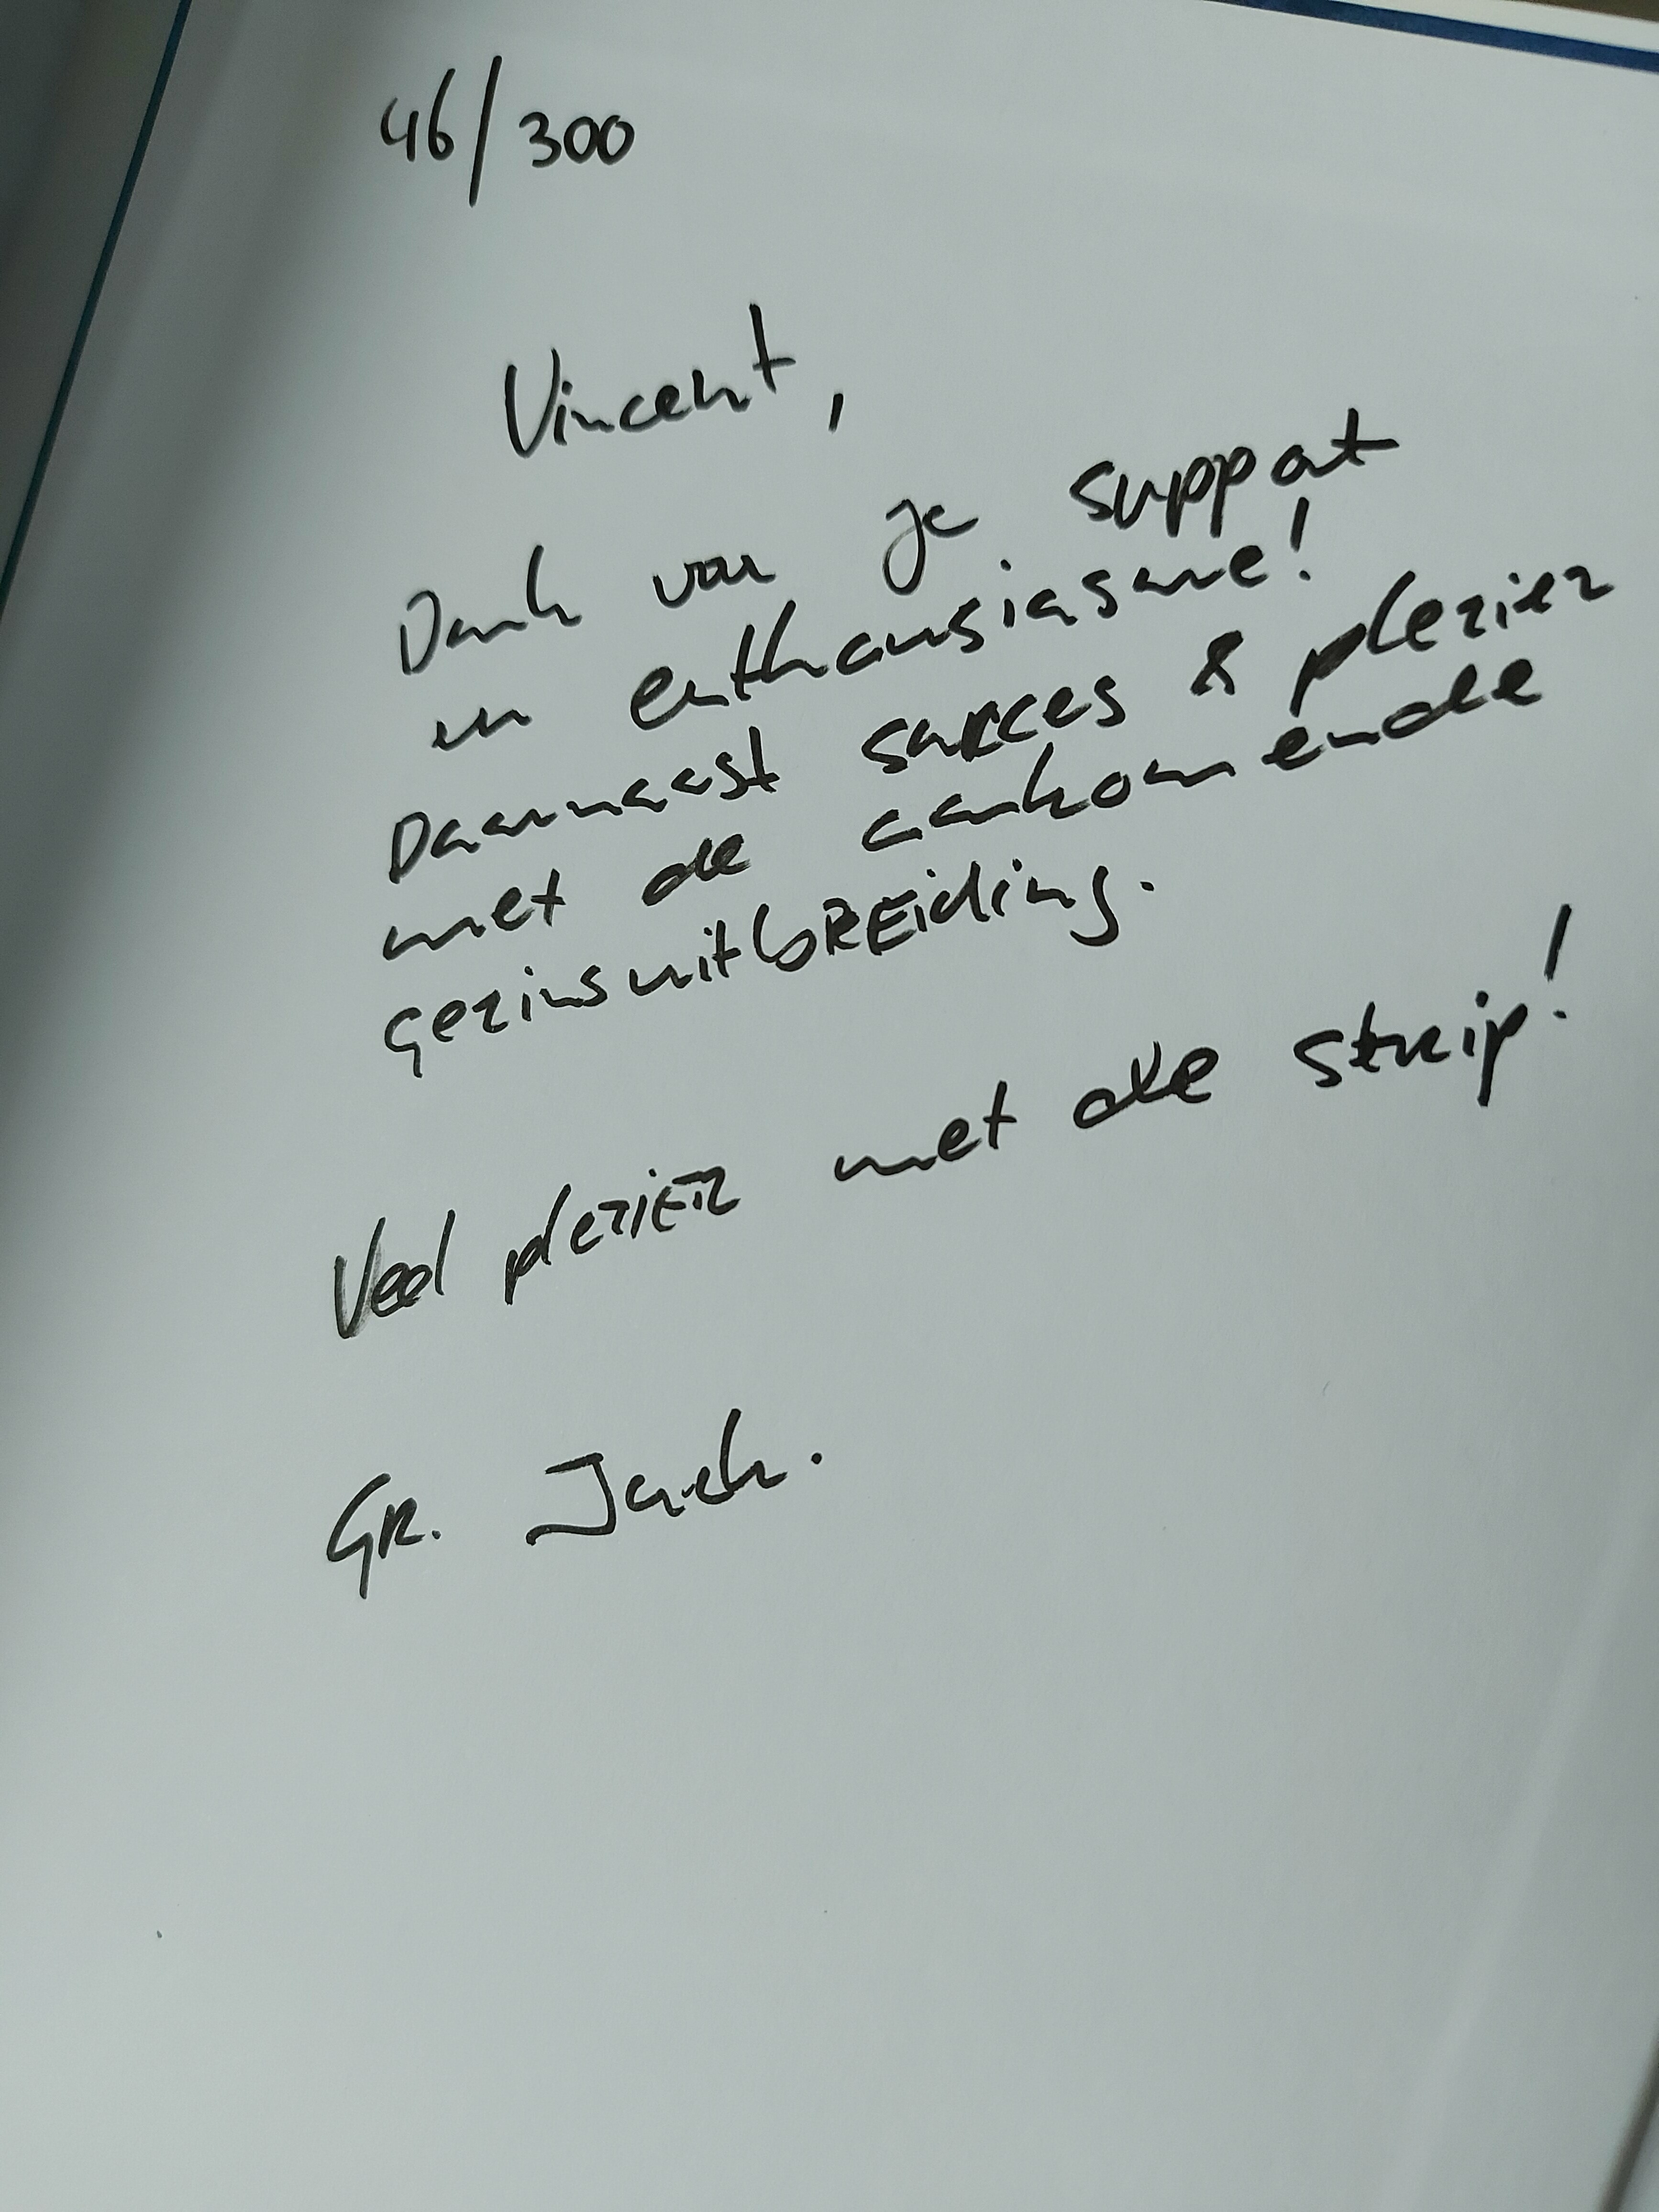 46/300
Vincent,
Dank voor je support
en enthausiasme!
Daarnaast succes & plezier
met de aankomende
gezinsuitbreiding.
Veel plezier met de strip!
Gr. Jack.